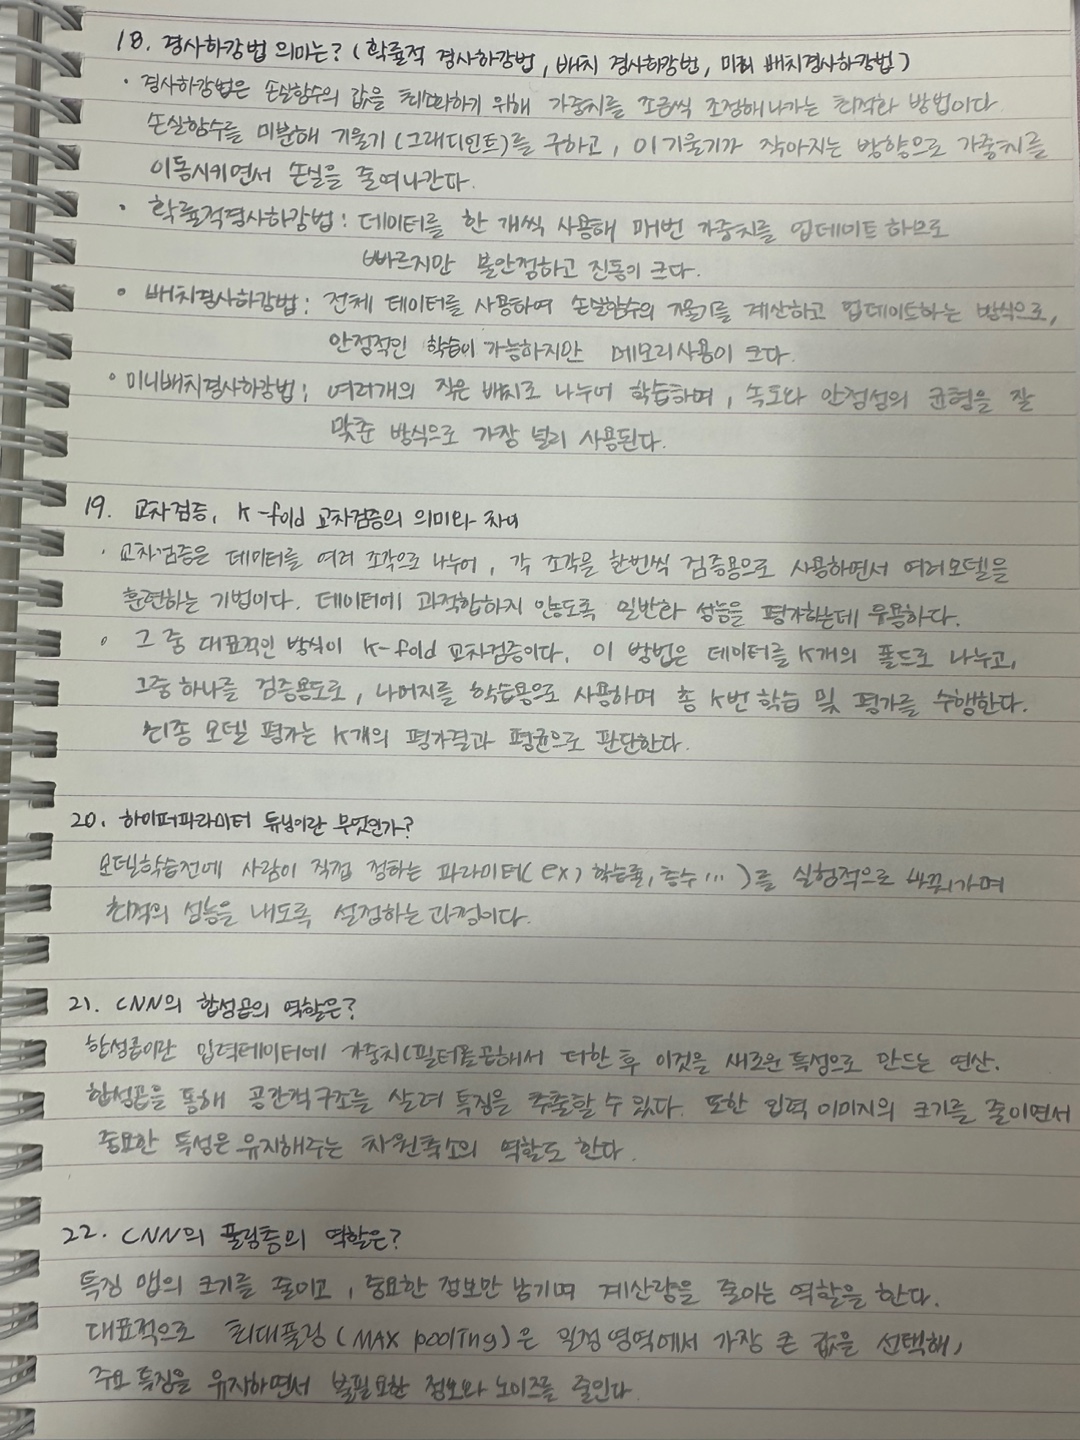 18. 경사하강법 의미는? (확률적 경사하강법, 배치 경사하강법, 미니 배치경사하강법)
· 경사하강법은 손실함수의 값을 최소화하기 위해 가중치를 조금씩 조정해나가는 최적화 방법이다.
손실함수를 미분해 기울기(그래디언트)를 구하고, 이 기울기가 작아지는 방향으로 가중치를
이동시키면서 손실을 줄여나간다.
· 확률적경사하강법 : 데이터를 한 개씩 사용해 매번 가중치를 업데이트 하므로
빠르지만 불안정하고 진동이 크다.
· 배치경사하강법 : 전체 데이터를 사용하여 손실함수의 기울기를 계산하고 업데이트하는 방식으로,
안정적인 학습이 가능하지만 메모리사용이 크다.
· 미니배치경사하강법 : 여러개의 작은 배치로 나누어 학습하며, 속도와 안정성의 균형을 잘
맞춘 방식으로 가장 널리 사용된다.
19. 교차검증, K-fold 교차검증의 의미와 차이
· 교차검증은 데이터를 여러 조각으로 나누어, 각 조각을 한번씩 검증용으로 사용하면서 여러모델을
훈련하는 기법이다. 데이터에 과적합하지 않도록 일반화 성능을 평가하는데 유용하다.
· 그 중 대표적인 방식이 K-fold 교차검증이다. 이 방법은 데이터를 K개의 폴드로 나누고,
그중 하나를 검증용도로, 나머지를 학습용으로 사용하며 총 K번 학습 및 평가를 수행한다.
최종 모델 평가는 K개의 평가결과 평균으로 판단한다.
20. 하이퍼파라미터 튜닝이란 무엇인가?
모델학습전에 사람이 직접 정하는 파라미터(ex) 학습률, 층수 ...)를 실험적으로 바꿔가며
최적의 성능을 내도록 설정하는 과정이다.
21. CNN의 합성곱의 역할은?
합성곱이란 입력데이터에 가중치(필터)를곱해서 더한 후 이것을 새로운 특성으로 만드는 연산.
합성곱을 통해 공간적구조를 살려 특징을 추출할 수 있다. 또한 입력 이미지의 크기를 줄이면서
중요한 특성은 유지해주는 차원축소의 역할도 한다.
22. CNN의 풀링층의 역할은?
특징 맵의 크기를 줄이고, 중요한 정보만 남기며 계산량을 줄이는 역할을 한다.
대표적으로 최대풀링(MAX pooling)은 일정 영역에서 가장 큰 값을 선택해,
주요 특징을 유지하면서 불필요한 정보와 노이즈를 줄인다.